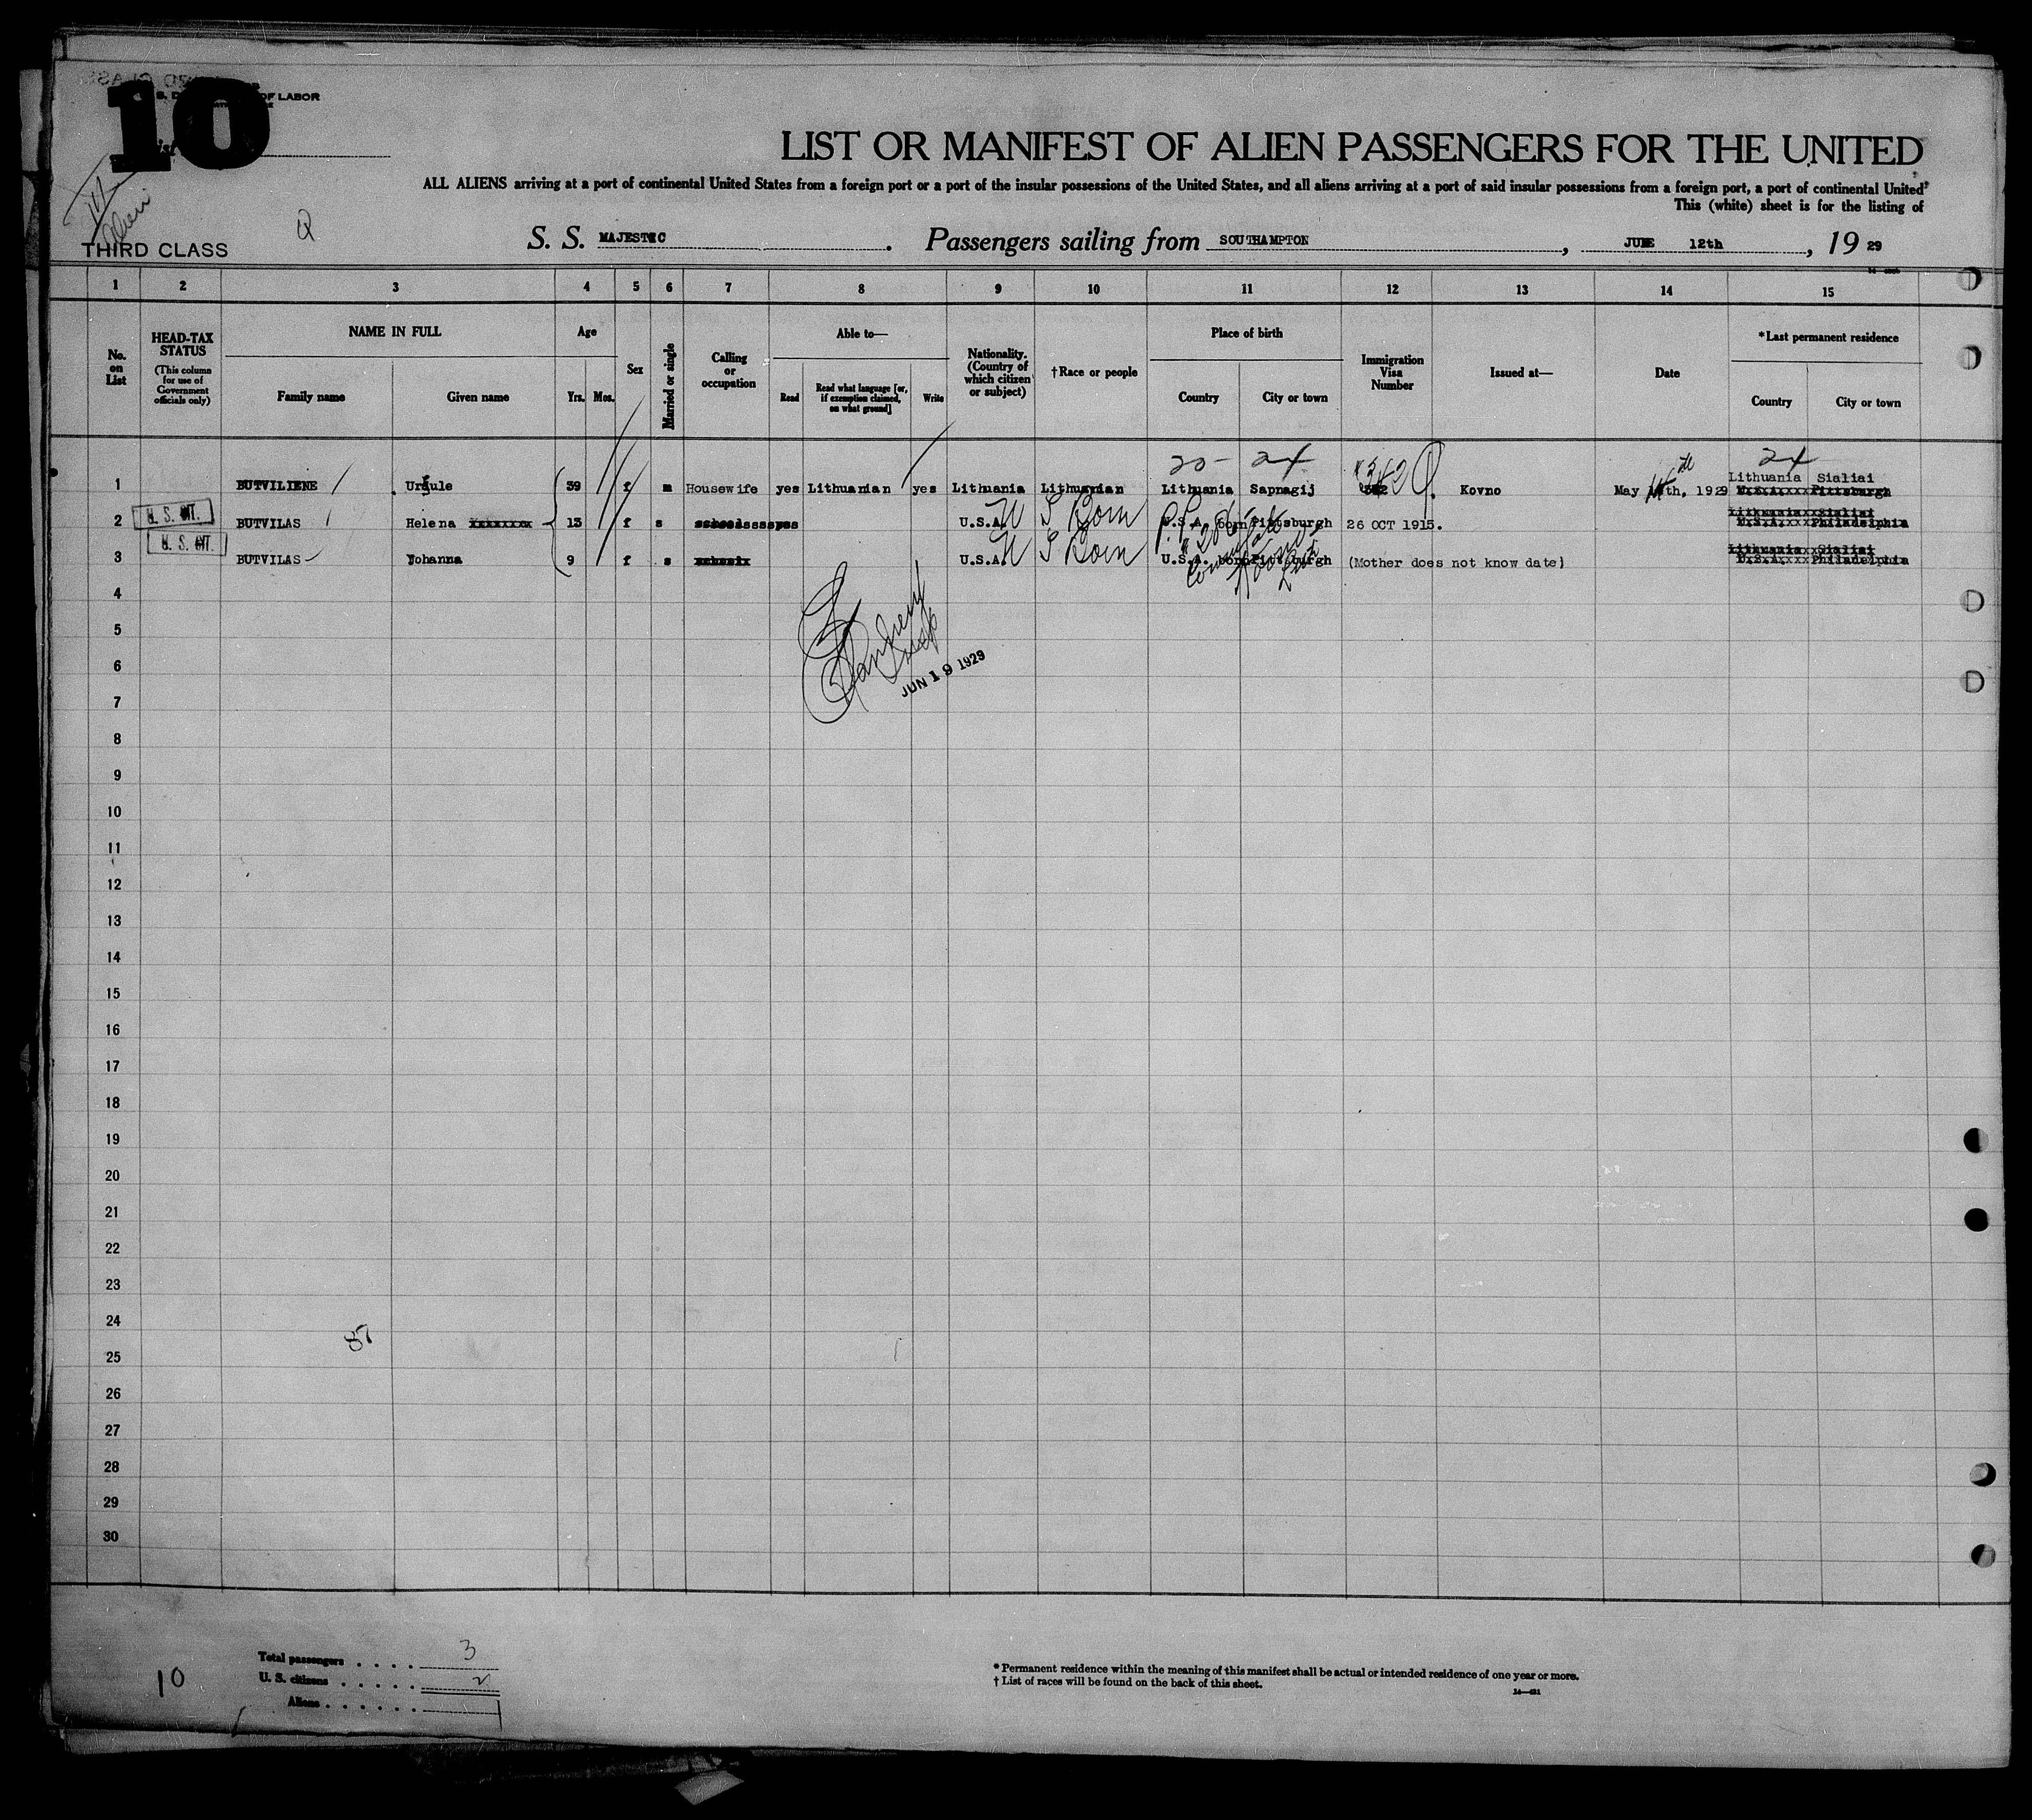 10
OF LABOR
LIST OR MANIFEST OF ALIEN PASSENGERS FOR THE UNITED
ALL ALIENS arriving at a port of continental United States from a foreign port or a port of the insular possessions of the United States, and all aliens arriving at a port of said insular possessions from a foreign port, a port of continental United
This (white) sheet is for the listing of
THIRD CLASS
S. S. MAJESTIC . Passengers sailing from SOUTHAMPTON , JUNE 12th , 19 29
1 2 3 4 5 6 7 8 9 10 11 12 13 14 15
No. on List
HEAD-TAX STATUS (This column for use of Government officials only)
NAME IN FULL
Family name Given name
Age
Yrs. Mos.
Sex
Married or single
Calling or occupation
Able to—
Read Read what language [or, if exemption claimed, on what ground] Write
Nationality. (Country of which citizen or subject)
†Race or people
Place of birth
Country City or town
Immigration Visa Number
Issued at—
Date
*Last permanent residence
Country City or town
20 - 24 24
1 BUTVILIENE Ursule 39 f m Housewife yes Lithuanian yes Lithuania Lithuanian Lithuania Sapnagij Kovno May th, 1929 Lithuania Sialiai
U.S.A.xxxxPittsburgh
2 U. S. CIT. BUTVILAS Helena xxxxxxxx 13 f s U.S.A. U S Born U.S.A. born Pittsburgh 26 OCT 1915.
Lithuaniaxx Sialiai
U.S.A.xxxPhiladelphia
3 U. S. CIT. BUTVILAS Yohanna 9 f s U.S.A. U S Born U.S.A. born Pittsburgh (Mother does not know date)
Lithuaniaxx Sialiai
U.S.A.xxxPhiladelphia
4
5
6
JUN 19 1929
7
8
9
10
11
12
13
14
15
16
17
18
19
20
21
22
23
24
87
25
26
27
28
29
30
Total passengers . . . . 3
U. S. citizens . . . . . 2
Aliens . . . . . .
10
* Permanent residence within the meaning of this manifest shall be actual or intended residence of one year or more.
† List of races will be found on the back of this sheet.